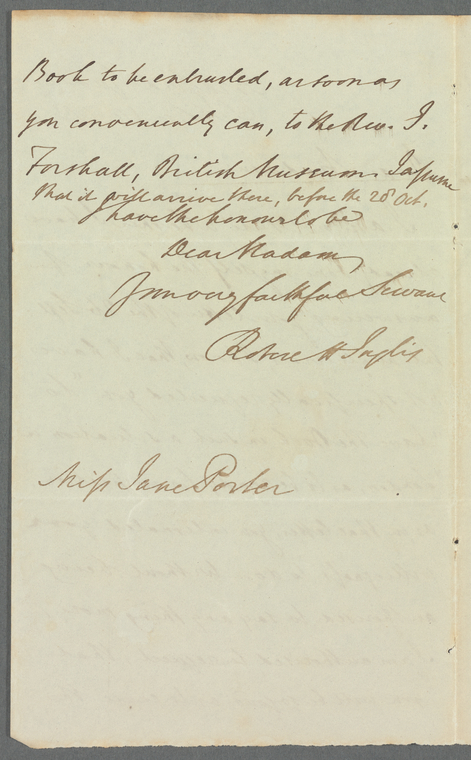 Book to be entrusted, as soon as
you conveniently can, to the Rev. J.
Forshall, British Museum. I assume
that it will arrive there, before the 28 Oct.
I have the honour to be
Dear Madam,
Your very faithful Servant
Robert H Inglis
Miss Jane Porter